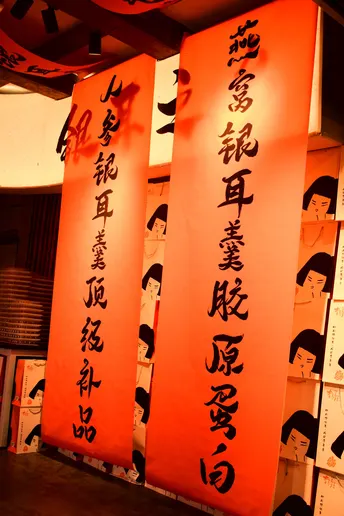 燕窝银耳羹胶原蛋白
人参银耳羹顶级补品